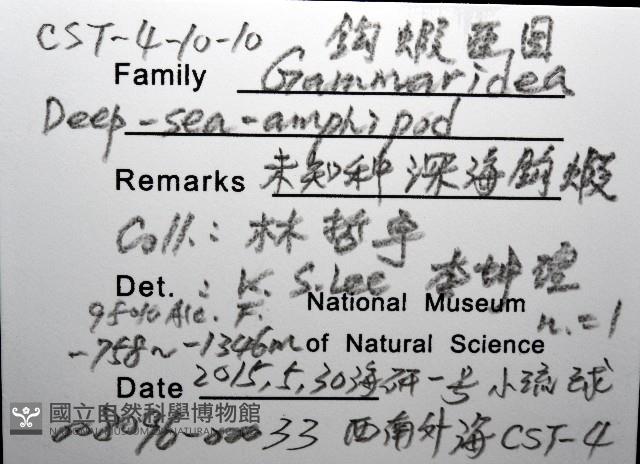 CST-4-10-10 鈎蝦亞目
Family Gammaridea
Deep-sea-amphipod
Remarks 未知种深海鈎蝦
Coll.: 林哲宇
Det. : K. S. Lee 李坤瑄
95% Alc. F. National Museum n.=1
-758~-1346m of Natural Science
Date 2015.5.30海研一号 小流球
國立自然科學博物館
NATIONAL MUSEUM OF NATURAL SCIENCE
33 西南外海CST-4